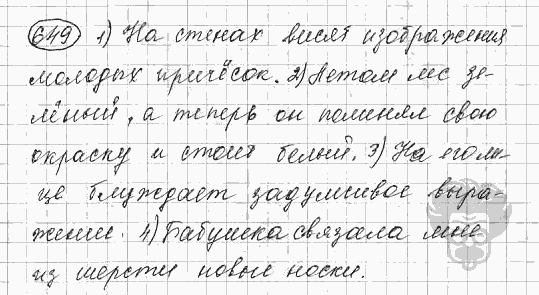 649 1) На стенах висят изображения
молодых причёсок. 2) Летом лес зе-
лёный, а теперь он поменял свою
окраску и стоит белый. 3) На его ли-
це блуждает задумчивое выра-
жение. 4) Бабушка связала мне
из шерсти новые носки.